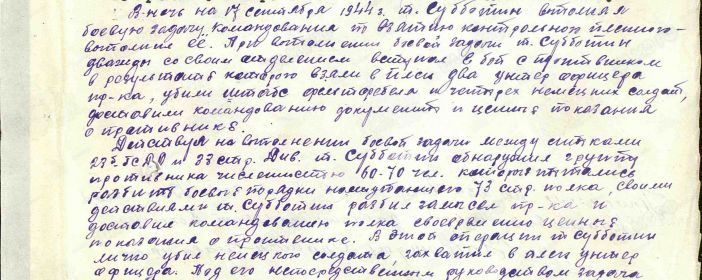 В ночь на 17 сентября 1944 г. т. Субботин выполняя
боевую задачу командования по взятию контрольного пленного-
выполнил её. При выполнении боевой задачи т. Субботин
дважды со своим отделением вступал в бой с противником
в результате которого взяли в плен два унтер офицера
пр-ка, убили штабс фельтфебеля и четырех немецких солдат,
доставили командованию документы и ценные показания
о противнике.
Действуя на выполнении боевой задачи между стыками
и 33 стр. Див. т. Субботин обнаружил группу
противника численностью 60-70 чел. которые пытались
разбить боевые порядки наступающего 73 стр. полка, своими
действиями т. Субботин разбил замысел пр-ка и
доставил командованию полка своевременно ценные
показания о противнике. В этой операции т. Субботин
лично убил немецкого солдата, захватил в плен унтер
офицера. Под его непосредственным руководством задача